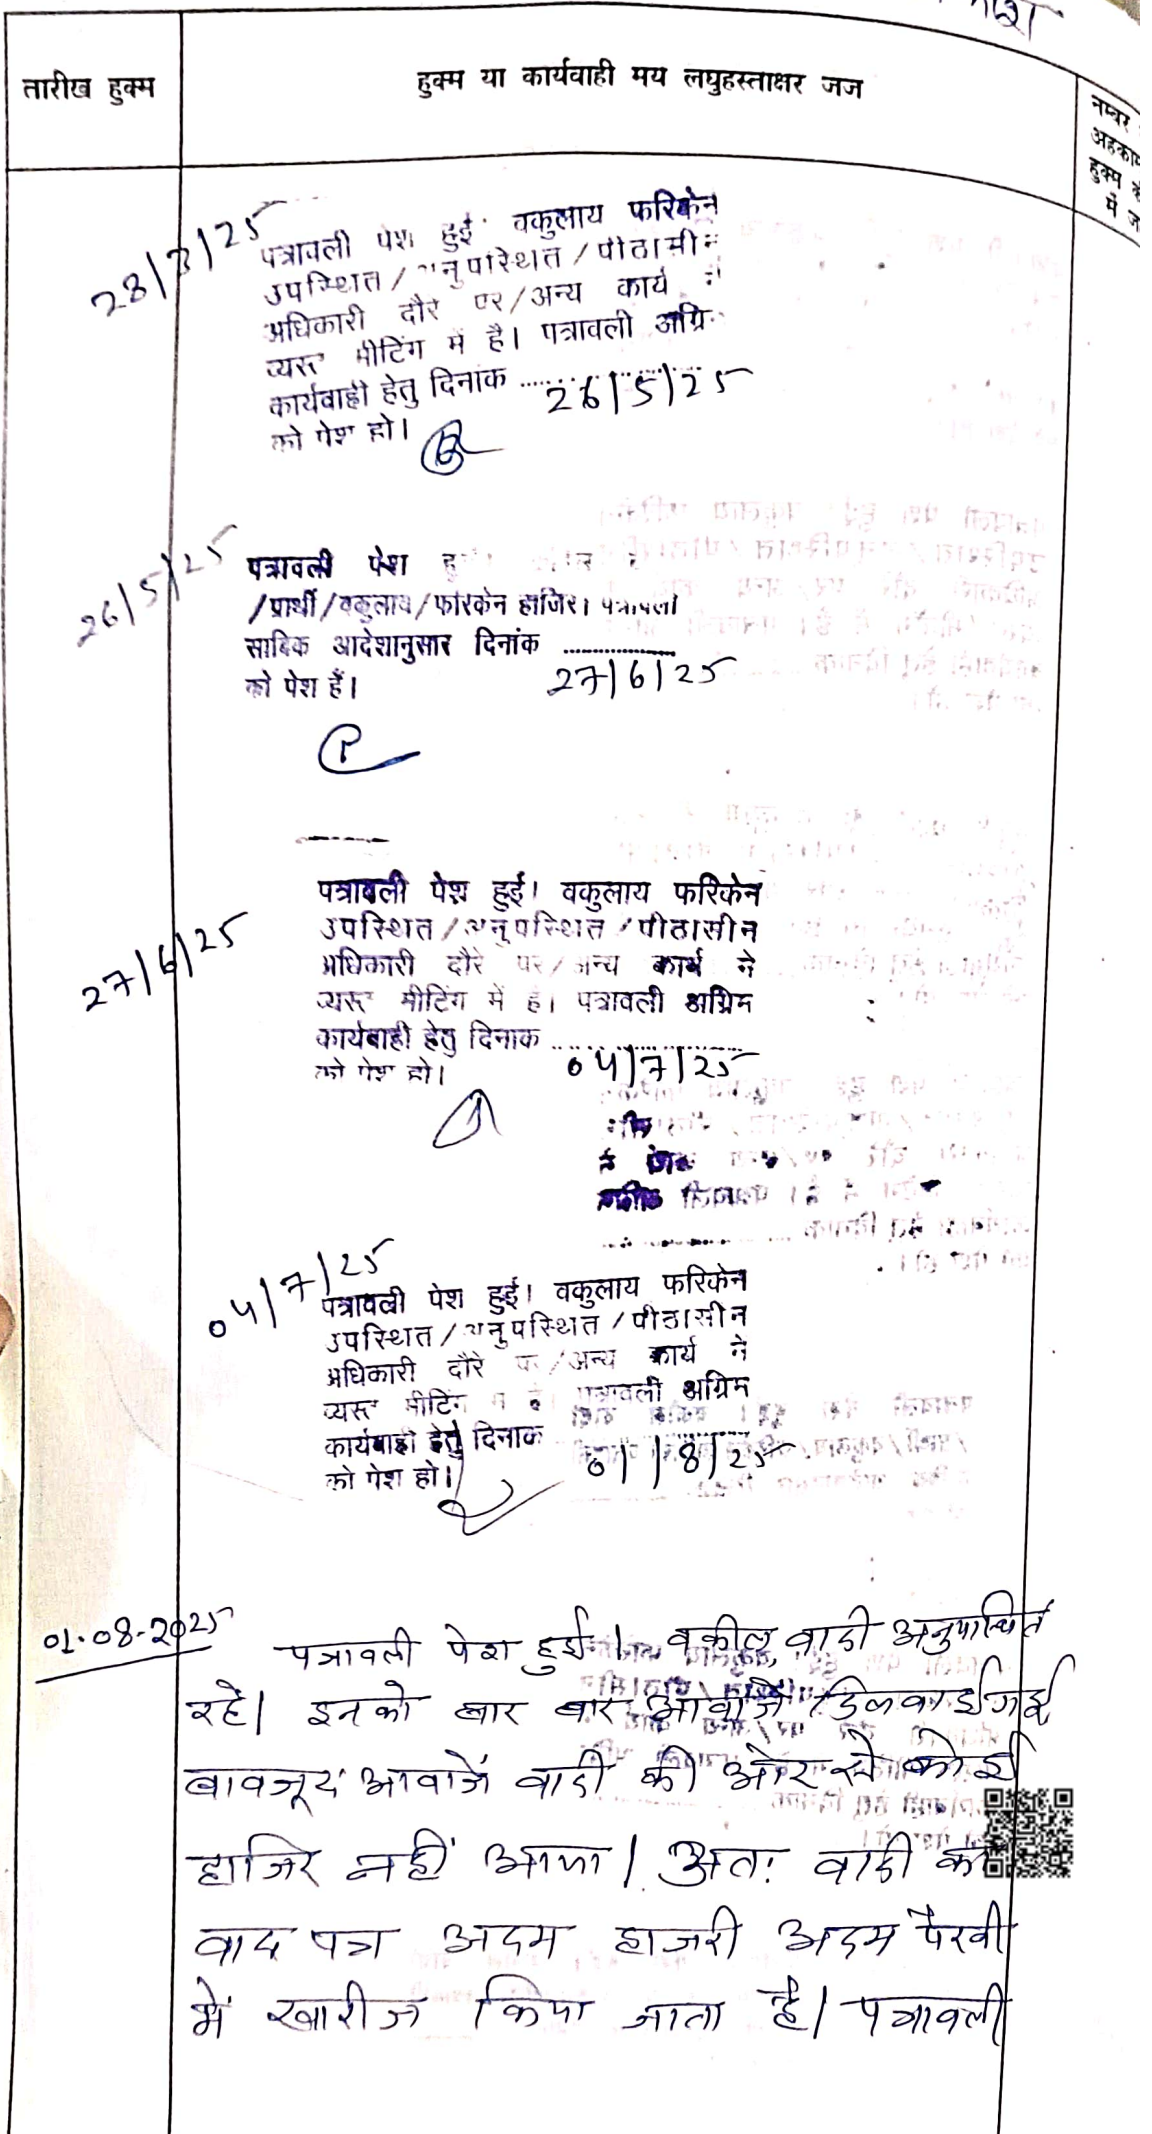 तारीख हुक्म
हुक्म या कार्यवाही मय लघुहस्ताक्षर जज
नम्बर
अहकाम
हुक्म
में
28/3/25
पत्रावली पेश हुई वकुलाय फरिकेन
उपस्थित/अनुपस्थित/पीठासीन
अधिकारी दौरे पर/अन्य कार्य ने
व्यस्त मीटिंग में है। पत्रावली अग्रिम
कार्यवाही हेतु दिनाक ..................
26/5/25
को पेश हो।
26/5/25
पत्रावली पेश
/प्रार्थी/वकुलाय/फरिकेन हाजिर। पत्रावली
साबिक आदेशानुसार दिनांक ..................
को पेश हैं।
27/6/25
27/6/25
पत्रावली पेश हुई। वकुलाय फरिकेन
उपस्थित/अनुपस्थित/पीठासीन
अधिकारी दौरे पर/अन्य कार्य ने
व्यस्त मीटिंग में है। पत्रावली अग्रिम
कार्यवाही हेतु दिनाक ..................
को पेश हो।
04/7/25
04/7/25
पत्रावली पेश हुई। वकुलाय फरिकेन
उपस्थित/अनुपस्थित/पीठासीन
अधिकारी दौरे पर/अन्य कार्य ने
व्यस्त मीटिंग में है। पत्रावली अग्रिम
कार्यवाही हेतु दिनाक ..................
को पेश हो।
01/8/25
01.08.2025
पत्रावली पेश हुई। वकील वादी अनुपस्थित
रहे। इनको बार बार आवाजें दिलवाई गई
बावजूद आवाजें वादी की ओर से कोई
हाजिर नहीं आया। अतः वादी का
वाद पत्र अदम हाजरी अदम पैरवी
में खारीज किया जाता है। पत्रावली